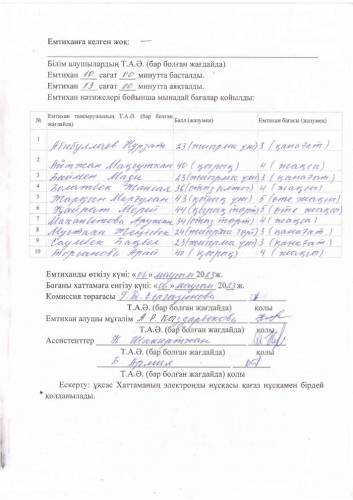 Емтиханға келген жоқ: —
Білім алушылардың Т.А.Ә. (бар болған жағдайда)
Емтихан 10 сағат 00 минутта басталды.
Емтихан 13 сағат 00 минутта аяқталды.
Емтихан нәтижелері бойынша мынадай бағалар қойылды:
№ Емтихан тапсырушының Т.А.Ә. (бар болған жағдайда) Балл (жазумен) Емтихан бағасы (жазумен)
1 Абибуллаев Нұрдәт 23 (жиырма үш) 3 (қанағат)
2 Айтжан Мақпұлжан 40 (қырық) 4 (жақсы)
3 Баймен Мади 23 (жиырма үш) 3 (қанағат)
4 Болатбек Жансая 36 (отыз алты) 4 (жақсы)
5 43 (қырық үш) 5 (өте жақсы)
6 Қайрат Мерей 44 (қырық төрт) 5 (өте жақсы)
7 34 (отыз төрт) 4 (жақсы)
8 24 (жиырма төрт) 3 (қанағат)
9 23 (жиырма үш) 3 (қанағат)
10 Торғанова Арай 40 (қырық) 4 (жақсы)
Емтиханды өткізу күні: «06» маусым 2023ж.
Бағаны хаттамаға енгізу күні: «06» маусым 2023ж.
Комиссия төрағасы
Т.А.Ә. (бар болған жағдайда) қолы
Емтихан алушы мұғалім
Т.А.Ә. (бар болған жағдайда) қолы
Ассистенттер
Т.А.Ә. (бар болған жағдайда) қолы
Б
Т.А.Ә. (бар болған жағдайда) қолы
Ескерту: ұқсас Хаттаманың электронды нұсқасы қағаз нұсқамен бірдей
қолданылады.